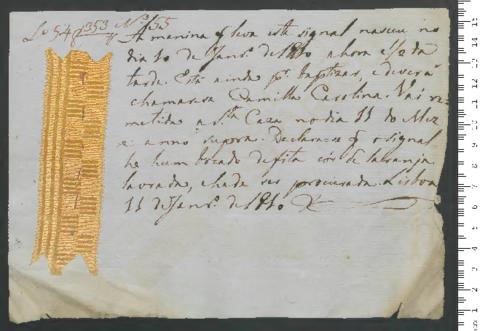 Lº 54 f 353 Nº 55
A menina q leva este signal nasceu no
dia 10 de Janrº de 1810 ahora e 1/2 da
tarde. Está ainda pr. baptizar, e deverá
chamarse Camilla Carolina. Vai re-
metida a Sta Caza no dia 11 do Mez
e anno supora. Declarase q o signal
he hum bocado de fita côr de laranja
lavrada, e hade ser procurada. Lisboa
11 de Janrº de 1810